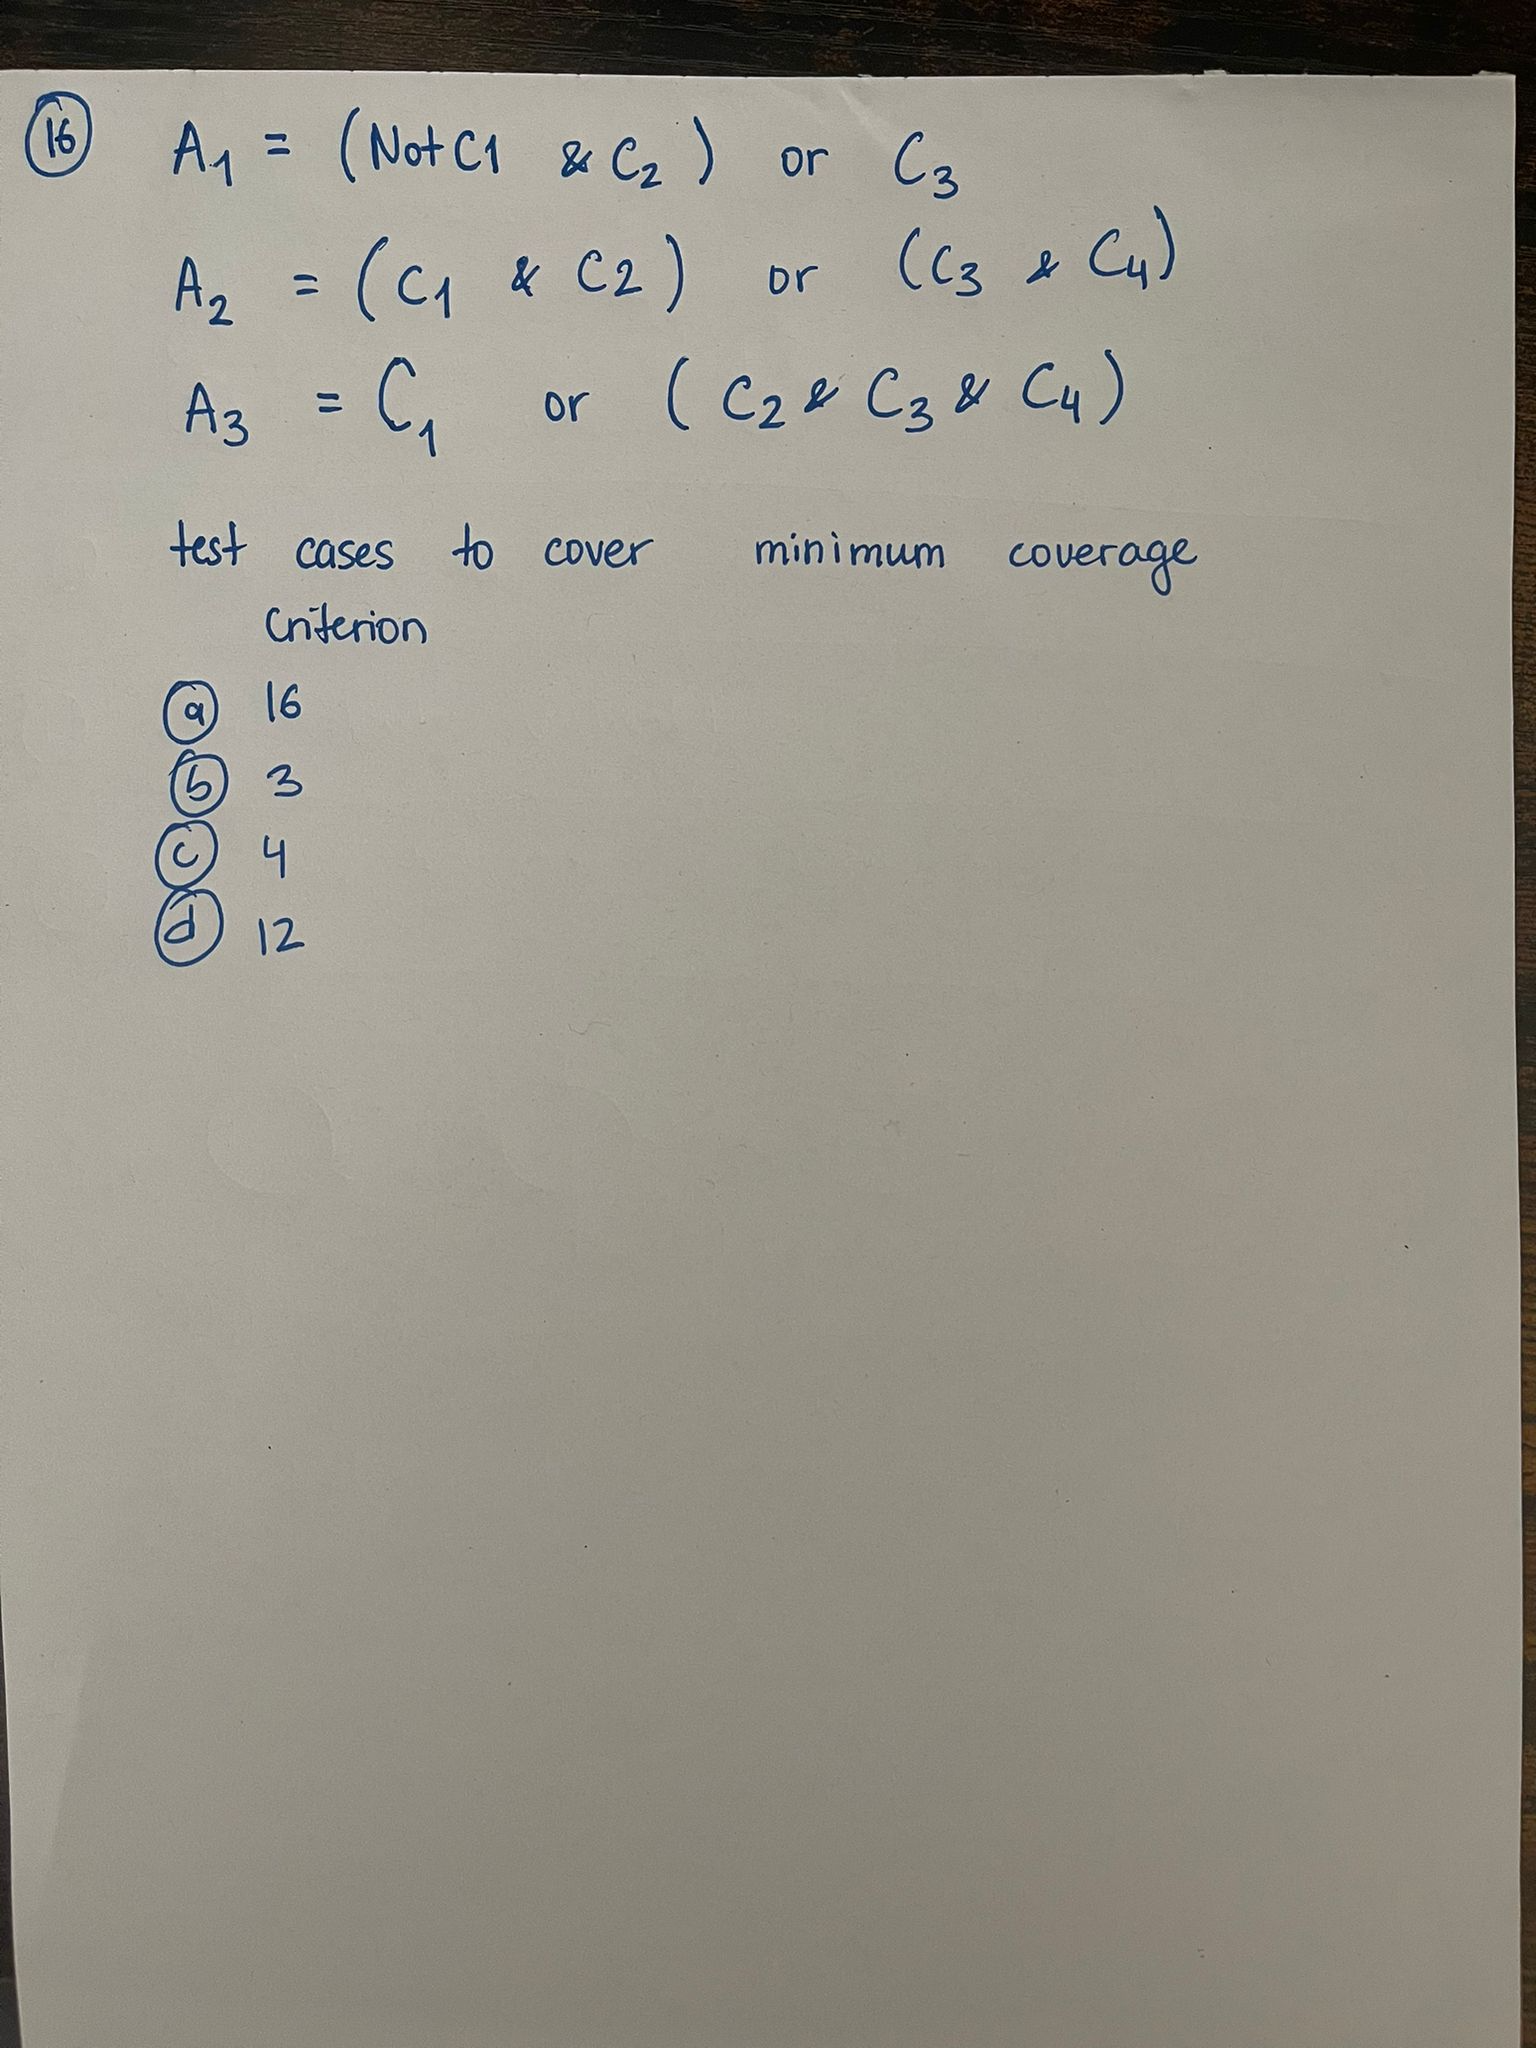 16 A1 = (Not C1 & C2) or C3
A2 = (C1 & C2) or (C3 & C4)
A3 = C1 or (C2 & C3 & C4)
test cases to cover minimum coverage
criterion
a 16
b 3
c 4
d 12